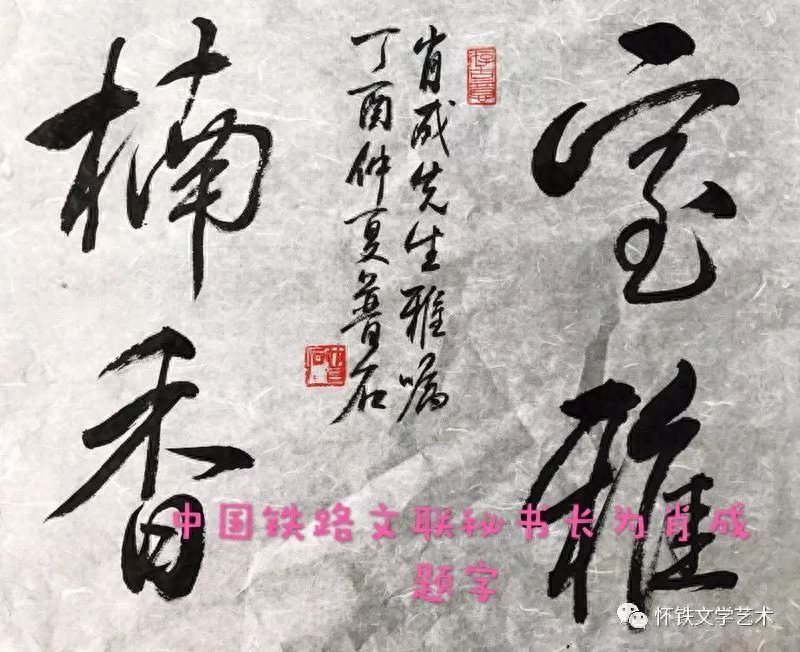 室雅
楠香
肖成先生雅嘱
丁酉仲夏普石
中国铁路文联秘书长为肖成
题字
怀铁文学艺术